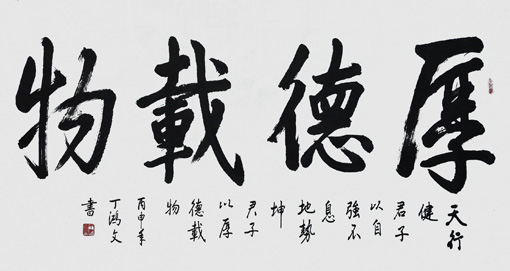 厚德載物
天行
健
君子
以自
強不
息
地勢
坤
君子
以厚
德載
物
丙申年
丁鴻文
書